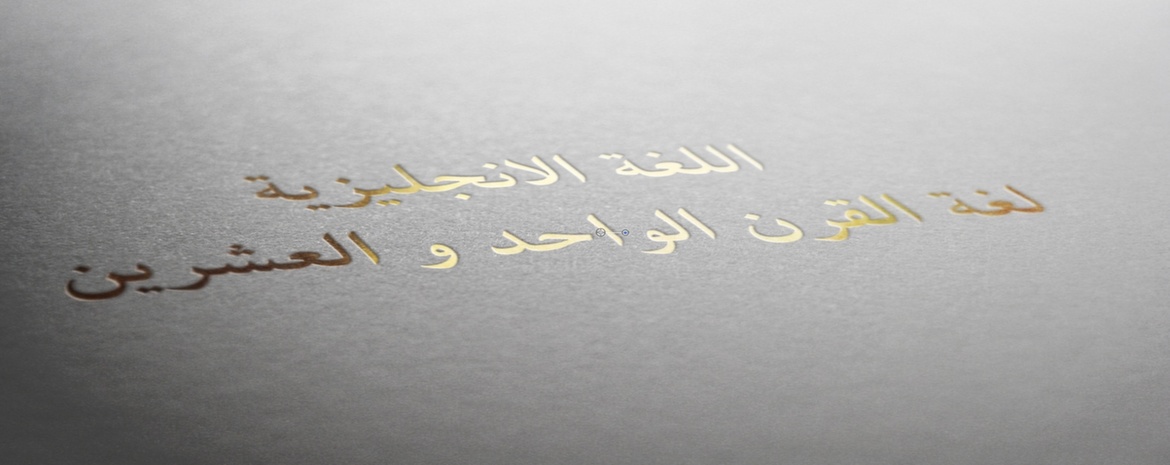 اللغة الانجليزية
لغة القرن الواحد و العشرين